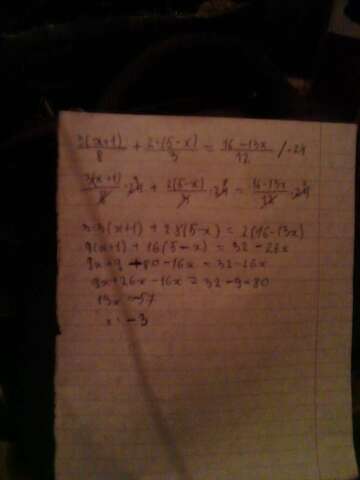 3(x+1)/8 + 2·(5-x)/3 = 16-13x/12 /·24
3(x+1)/8 ·24 3 + 2(5-x)/3 ·24 8 = 16-13x/12 ·24 2
3·3(x+1) + 2·8(5-x) = 2(16-13x)
9(x+1) + 16(5-x) = 32-26x
9x+9 +80-16x = 32-26x
9x+26x-16x = 32-9-80
19x = -57
x = -3